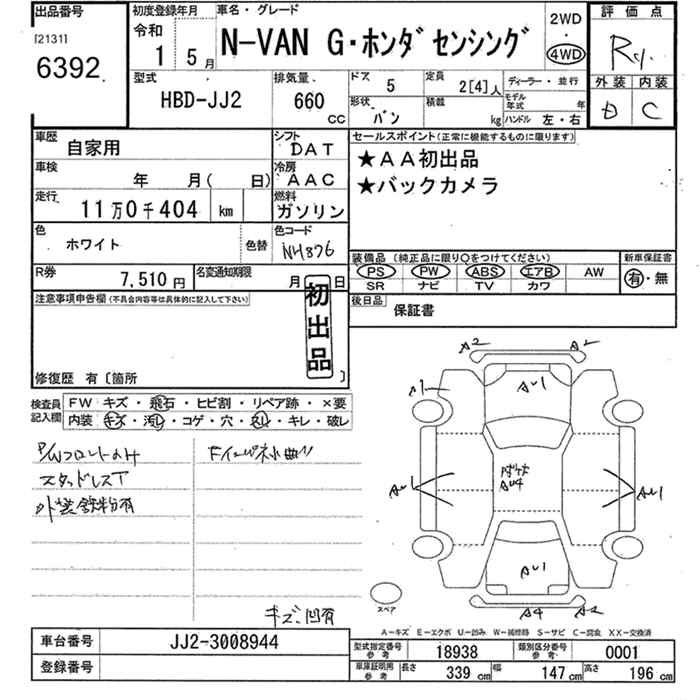 出品番号 初度登録年月 車名・グレード 2WD 評価点
[2131] 令和 N-VAN G・ホンダセンシング 4WD R
6392 1 5月
外装 内装
D C
型式 排気量 ドア 5 定員 2[4]人 ディーラー・並行
HBD-JJ2 660 CC 形状 バン 積載 kg モデル年式 年
ハンドル 左・右
車歴 自家用 シフト DAT セールスポイント(正常に機能するものに限ります)
車検 年 月( 日) 冷房 AAC ★AA初出品
走行 11万0千404 km 燃料 ガソリン ★バックカメラ
色 ホワイト 色替 色コード NH876
装備品(純正品に限り○をつけてください) 新車保証書
PS PW ABS エアB AW 有・無
SR ナビ TV カワ
R券 7,510円 名変通知期限 月 日
後日品 保証書
注意事項申告欄(不具合内容等は具体的に記入して下さい)
初出品
修復歴 有〔箇所 〕
検査員記入欄 FW キズ・飛石・ヒビ割・リペア跡・×要
内装 キズ・汚レ・コゲ・穴・欠レ・キレ・破レ
P/Wフロントのみ
スタッドレスT
外装鉄粉有
キズ、凹有
A2 A2
AU1
A1
AU4
AU1 AU1
AU1
A4 A2
スペア
A-キズ E-エクボ U-凹み W-補修跡 S-サビ C-腐食 XX-交換済
車台番号 JJ2-3008944
登録番号
型式指定番号 参考 18938 類別区分番号 参考 0001
車庫証明用 参考 長さ 339 cm 幅 147 cm 高さ 196 cm